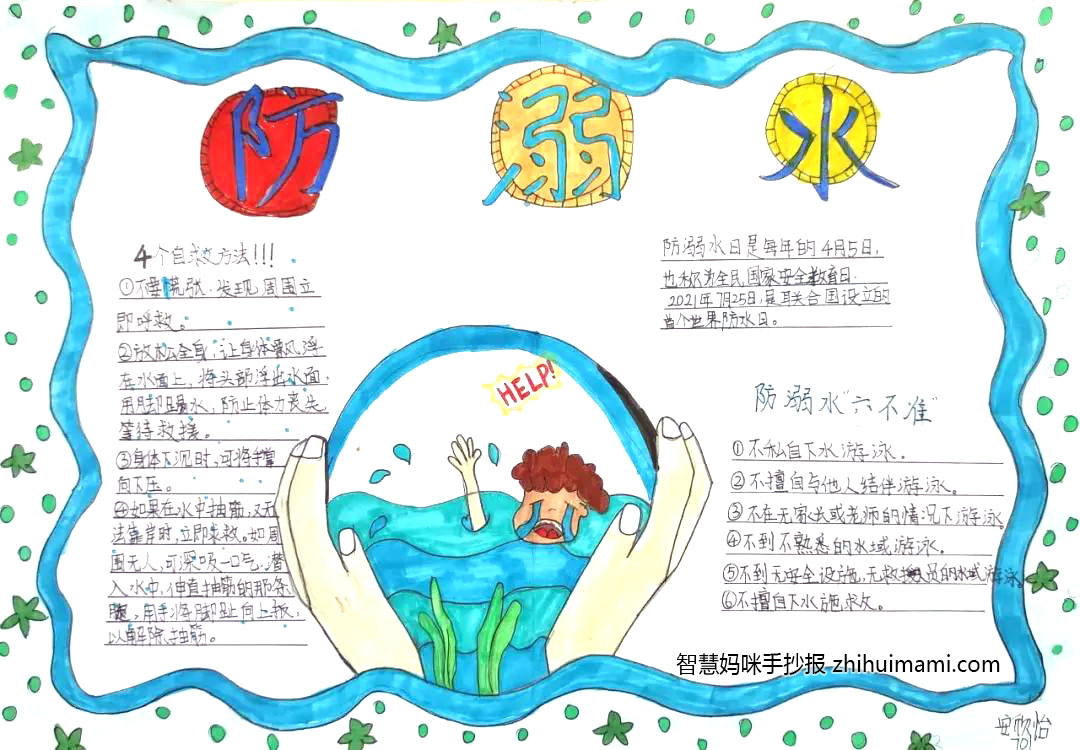 防 溺 水
4个自求救方法!!!
①不要慌张.发现周围立
即呼救。
②放松全身,让身体飘浮
在水面上,将头部浮出水面,
用脚踢水,防止体力丧失,
等待救援。
③身体下沉时,可将手掌
向下压。
④如果在水中抽筋,又无
法靠岸时,立即求救。如周
围无人,可深吸一口气,潜
入水中,伸直抽筋的那条
腿,用手将脚趾向上扳,
以解除抽筋。
防溺水日是每年的4月5日,
也称为全民国家安全教育日.
2021年7月25日,是联合国设立的
首个世界防水日。
HELP!
防溺水"六不准"
①不私自下水游泳.
②不擅自与他人结伴游泳。
③不在无家长或老师的情况下游泳
④不到不熟悉的水域游泳.
⑤不到无安全设施,无救援员的水域游泳
⑥不擅自下水施求。
智慧妈咪手抄报 zhihuimami.com
701